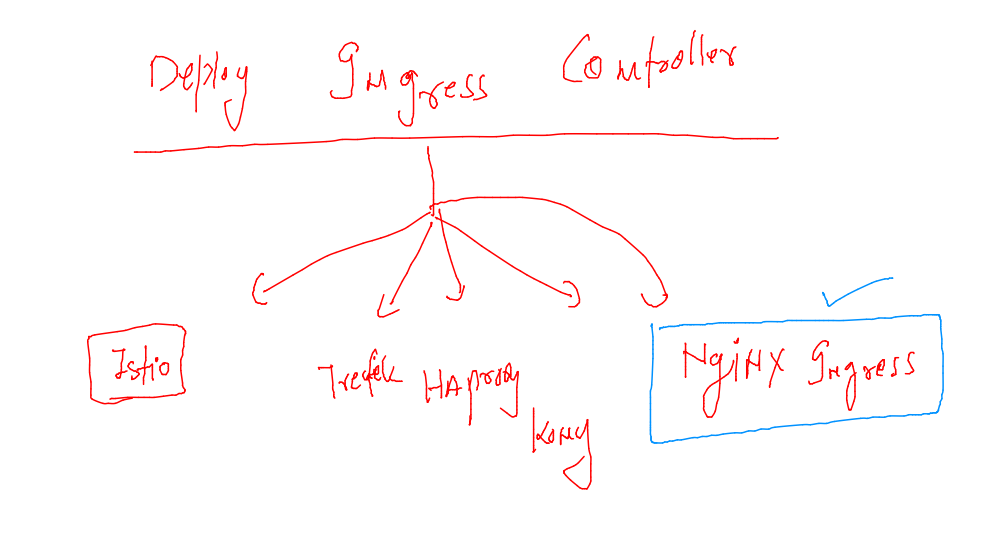 Deploy Ingress Controller
Istio
Trefik
HAproxy
Kong
NgiNX Ingress